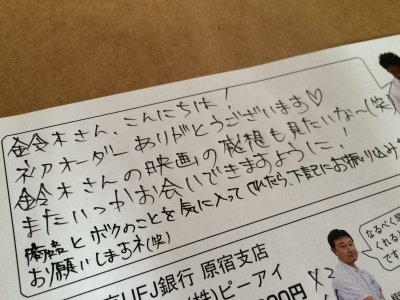 鈴木さん、こんにちは!
初オーダーありがとうございます♡
鈴木さんの映画の感想も見たいな〜(笑)
またいつかお会いできますように!
とボクのことを気に入ってくれたら、下記にお振り込み
お願いしますネ(笑)
UFJ銀行 原宿支店
(株)ピーアイ
00円 ×2
なるべく早
くれると
です